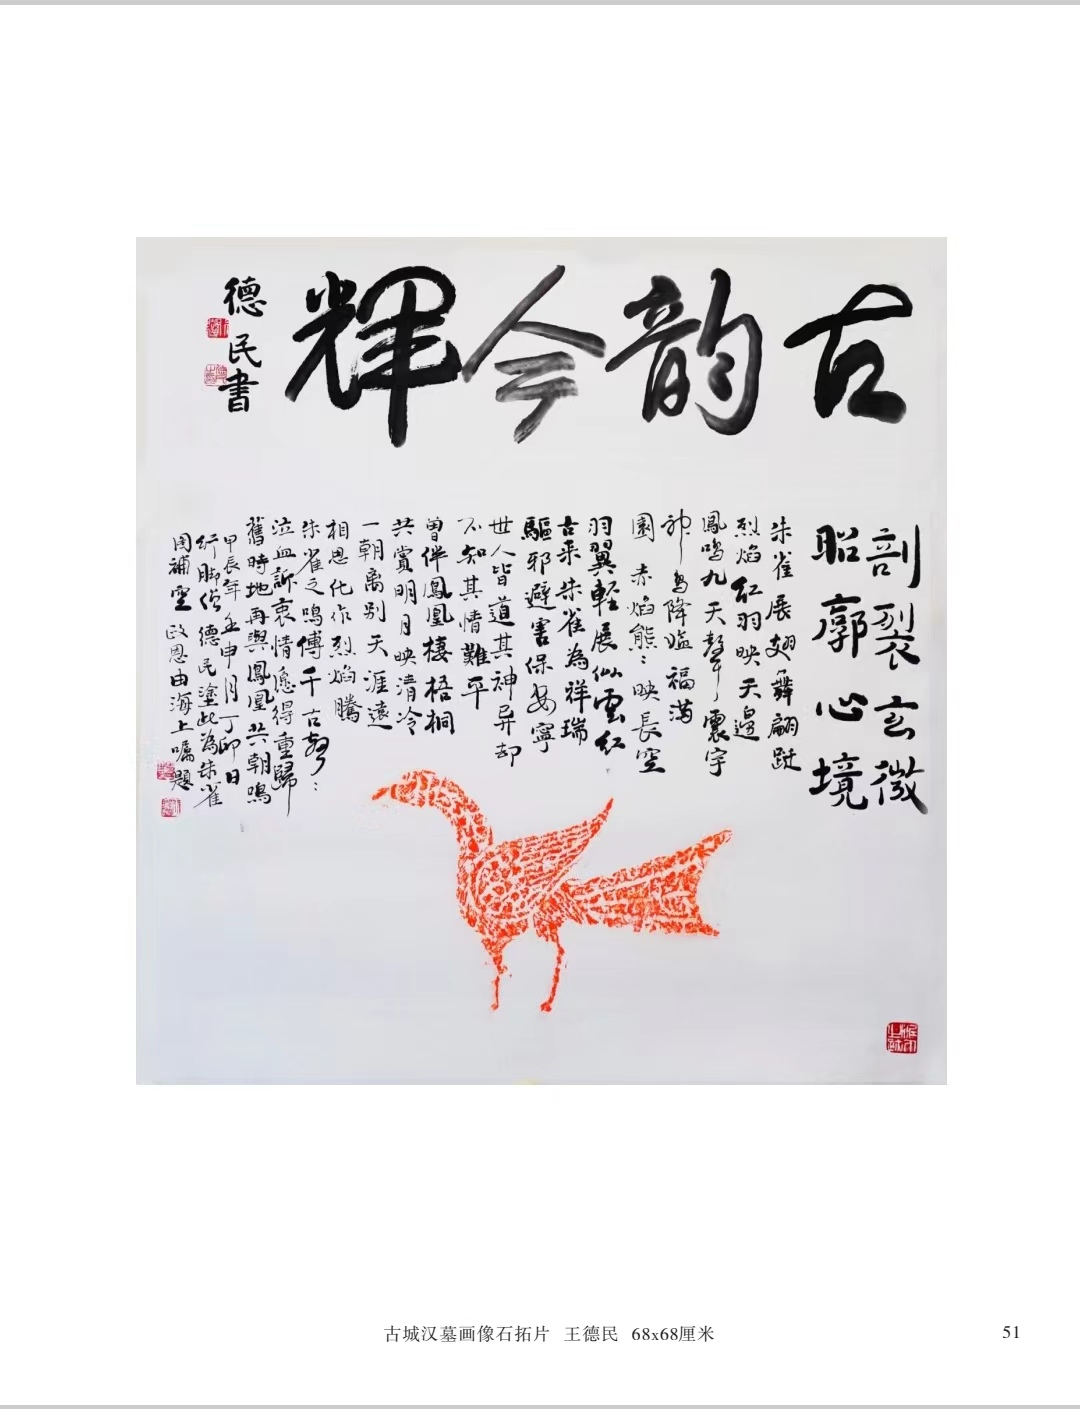 古韵今輝
德民書
剖裂玄微
昭廓心境
朱雀展翅舞翩跹
烈焰红羽映天邊
鳳鸣九天聲震宇
神鸟降临福满
園 赤焰熊〻映長空
羽翼輕展仙雲红
古来朱雀為祥瑞
驅邪避害保安寧
世人皆道其神异却
不知其情難平
曾伴鳳凰棲梧桐
共賞明月映清冷
一朝离别天涯遠
相思化作烈焰騰
朱雀之鳴傳千古
泣血訴衷情愿得重歸
舊時地再與鳳凰共朝鳴
甲辰年壬申月丁卯日
行脚僧德民塗此為朱雀
图補空 政恩由海上嘱題
古城汉墓画像石拓片 王德民 68x68厘米
51